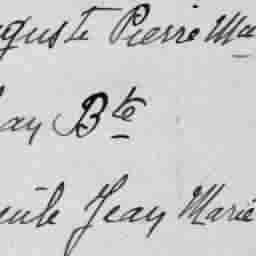 Auguste Pierre Ma
Jean Bte
Emile Jean Marie